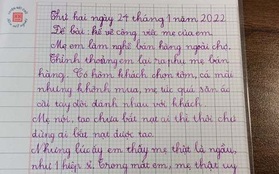 Thứ hai ngày 24 tháng 1 năm 2022
Đề bài: kể về công việc của em
Mẹ em làm nghề bán hàng ngoài chợ.
Thỉnh thoảng em lại ra phụ mẹ bán
hàng. Có hôm khách chọn tôm, cá mãi
nhưng không mua, mẹ tức quá sắn áo
cãi tay đôi đánh nhau với khách.
Mẹ nói, tao chưa bắt nạt ai thì thôi chứ
đừng ai bắt nạt được tao.
Những lúc ấy em thấy mẹ thật là ngầu,
như 1 hiệp sĩ. Trong mắt em, mẹ thật uy